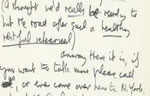 (I thought we'd really be ready to
hit the road after such a healthy
restful rehearsal)
anyway Here it is, if
you want to talk more please call
or even come over here to N. York